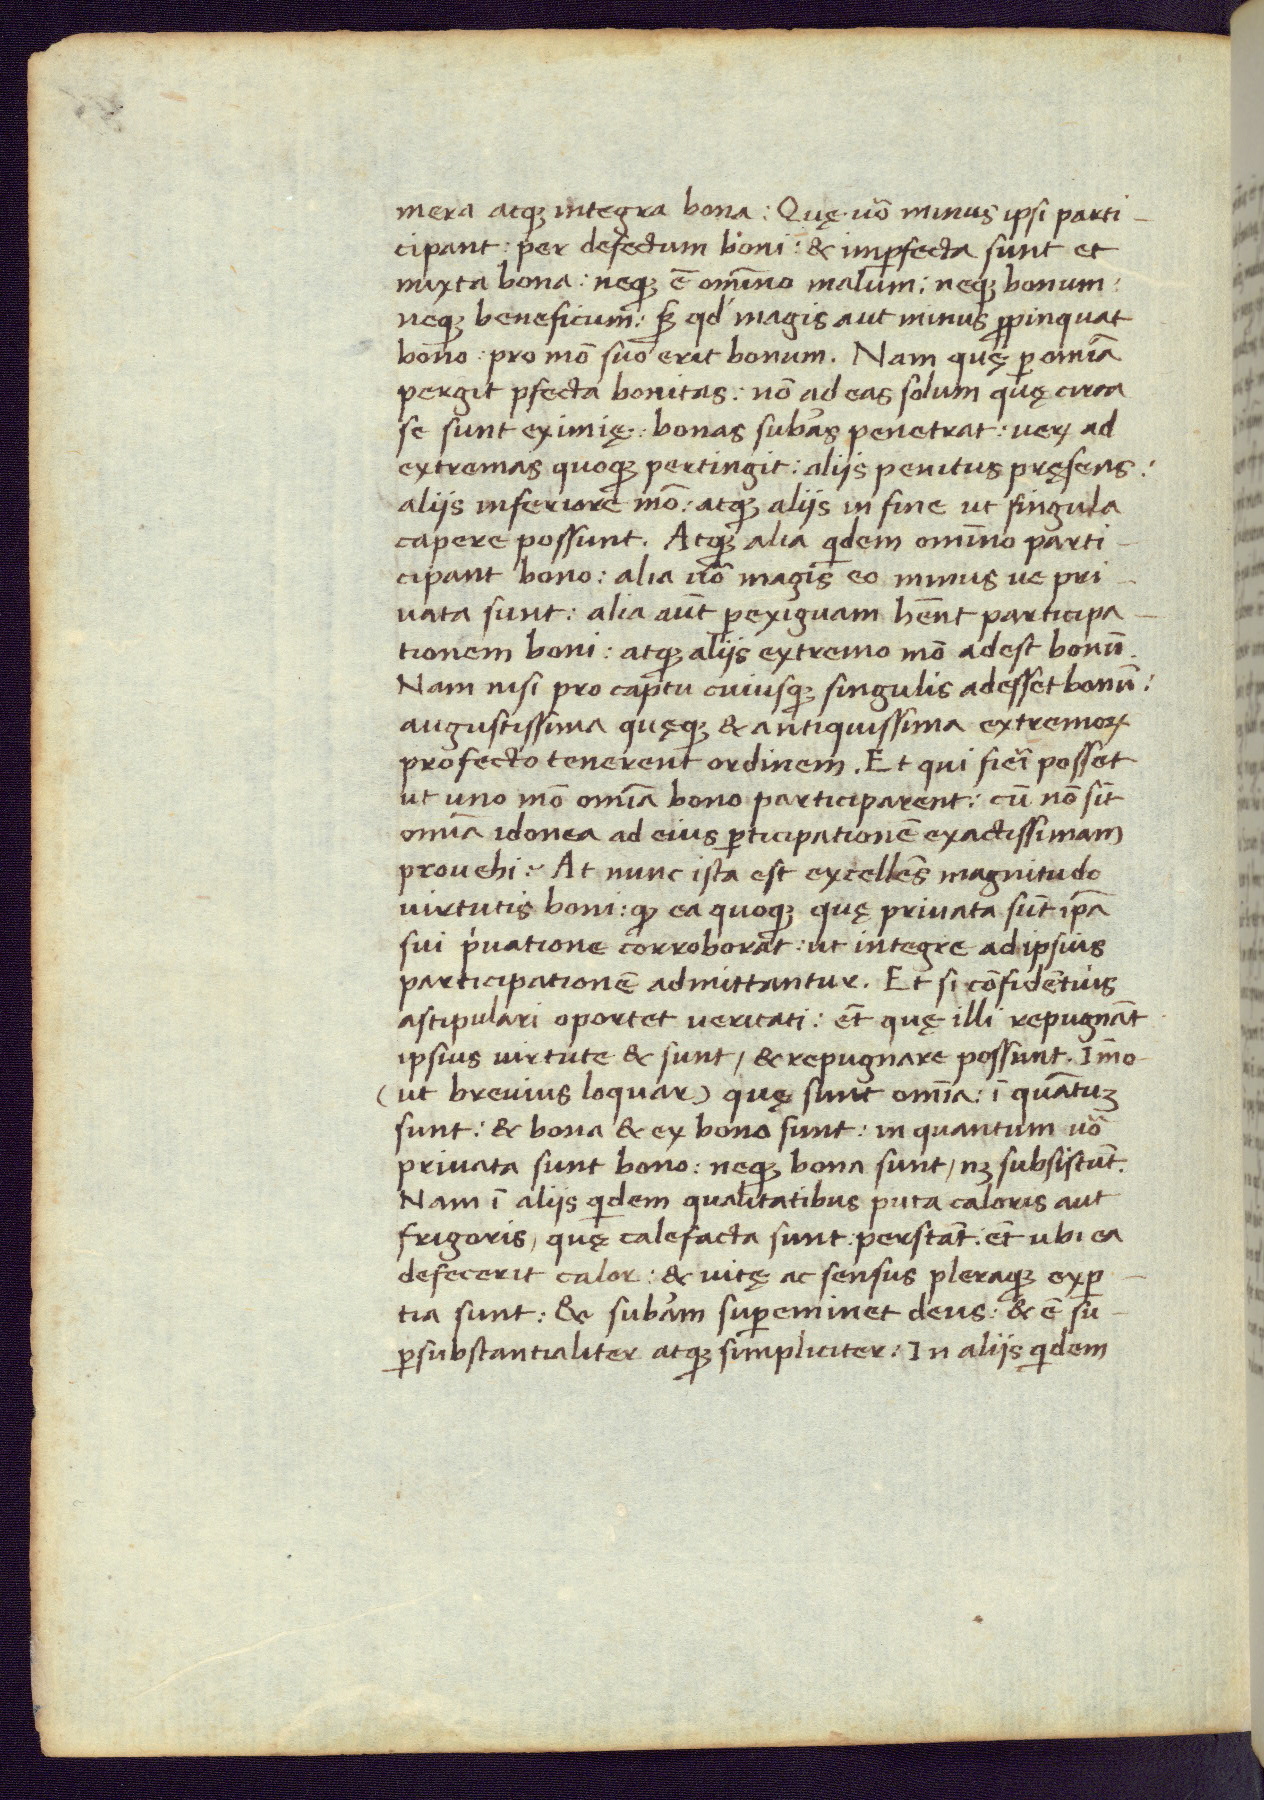 mera atqꝫ integra bona: Quę uõ minus ipsi parti-
cipant: per defectum boni: & imꝑfecta sunt et
mixta bona: neqꝫ ē omīno malum: neqꝫ bonum:
neqꝫ beneficum: sꝫ qd́ magis aut minus ꝓpinquat
bono: pro mō suo erit bonum. Nam quę ꝑ omīa
pergit ꝑfecta bonitas: nō ad eas solum quę circa
se sunt eximię: bonas subãs penetrat: ueꝝ ad
extremas quoqꝫ pertingit: aliis penitus pręsens:
aliis inferiore mō: atqꝫ aliis in fine ut singula
capere possunt. Atqꝫ alia qͥdem omīno parti-
cipant bono: alia uõ magis eo minus ue pri-
uata sunt: alia aūt ꝑexiguam hēnt participa-
tionem boni: atqꝫ aliis extremo mō adest bonū.
Nam nisi pro captu cuiusqꝫ singulis adesset bonū:
augustissima quęqꝫ & antiquissima extremoꝝ
profecto tenerent ordinem. Et qui fieri posset
ut uno mō omīa bono participarent: cū nō sīt
omīa idonea ad eius ꝑticipationē exactissimam
prouehi: At nunc ista est excellēs magnitudo
uirtutis boni: ꝙ ea quoqꝫ quę priuata sūt ip̄a
sui pͥuatione corroborāt: ut integre ad ipsius
participationē admittantur. Et si cōfidētius
astipulari oportet ueritati: ēt quę illi repugnāt
ipsius uirtute & sunt, & repugnare possunt. Imō
(ut breuius loquar) quę sunt omīa: ī quātuꝫ
sunt: & bona & ex bono sunt: in quantum uõ
priuata sunt bono: neqꝫ bona sunt, nꝫ subsistūt.
Nam ī aliis qͥdem qualitatibus puta caloris aut
frigoris, quę calefacta sunt: perstāt: ēt ubi ea
defecerit calor: & uitę ac sensus pleraqꝫ exꝑ-
tia sunt: & subãm suꝑeminet deus: & ē su-
ꝑsubstantialiter atqꝫ simpliciter: In aliis qͥdem